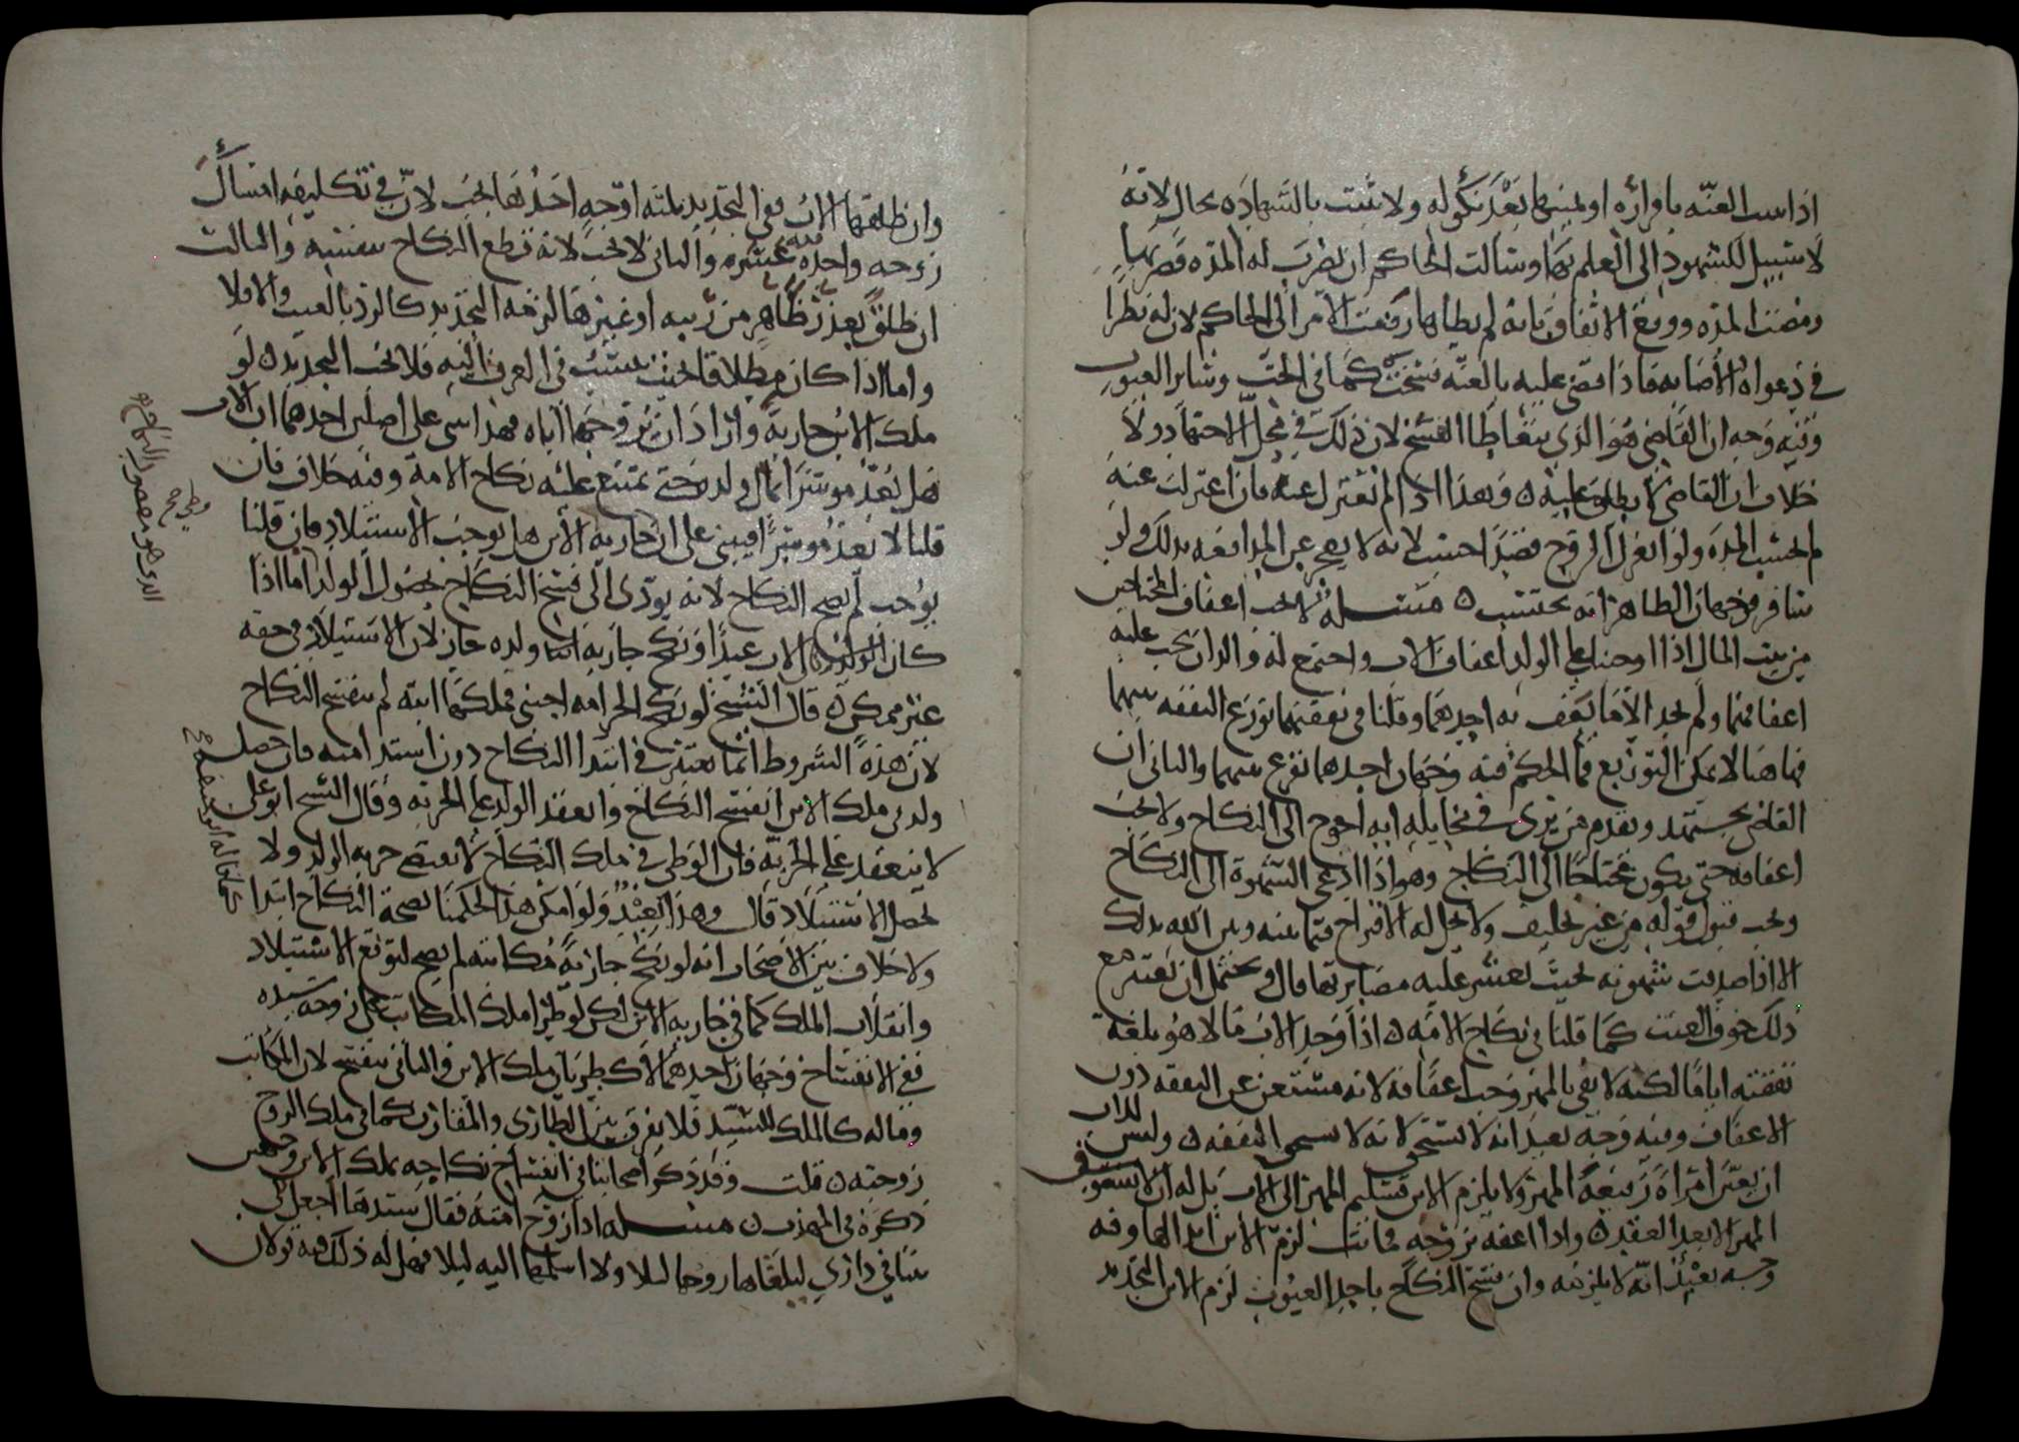 اذا ثبت العنة باقراره او يمينها بعد نكوله ولا تثبت بالشهادة بحال لانه
لا سبيل للشهود الى العلم بها وسالت الحاكم ان يضرب له المدة فضربها
ومضت المدة ووقع الاتفاق بانه لم يطاها رفعت الامر الى الحاكم لان له نظرا
في دعواه الاصابه فاذا قضى عليه بالعنه فسخت كما في الجب وسائر العيوب
وفيه وجه ان القاضي هو الذي يتعاطا الفسخ لان ذلك في محل الاجتهاد ولا
خلاف ان القاضي لا يطلق عليه وهذا اذا لم تعتزل عنه فان اعتزلت عنه
لم تحتسب المدة ولو انعزل الزوج قصدا احتسب لانه لا يعجز عن المدافعه بذلك ولو
سافر فوجهان الظاهر انه يحتسب مسله لا يجب اعفاف المحتاجين
من بيت المال اذا اوجبنا على الولد اعفاف الاب واجتمع له والدان يجب عليه
اعفافهما ولم يجد الا ما يعف به احدهما وقلنا في نفقتهما توزع النفقه بينهما
فها هنا لا يمكن التوزيع فما الحكم فيه وجهان احدهما نقرع بينهما والثاني ان
القاضي يجتهد ويقدم من يرى في مخايله انه احوج الى النكاح ولا يجب
اعفافه حتى يكون محتاجا الى النكاح وهو اذا ادعى الشهوة الى النكاح
وجب قبول قوله من غير تحليف ولا يحل له الاقتراح فيما بينه وبين الله بذلك
الا اذا صدقت شهوته بحيث تعسر عليه مصابرتها قال ويحتمل ان نعتبر مع
ذلك خوف العنت كما قلنا في نكاح الامه اذا وجد الاب مالا هو بلغة
نفقته اياما لكنه لا يفي بالمهر وجب اعفافه لانه مستغن عن النفقه دون
الاعفاف وفيه وجه بعيد انه لا يستحق لانه لا يستحق النفقه وليس للاب
ان يعين امراة رفيعة المهر ولا يلزم الابن تسليم المهر الى الاب بل له ان لا يسوق
المهر الا بعد العقد واذا اعفه بزوجه فماتت لزم الابن ابدالها وفيه
وجه بعيد انه لا يلزمه وان فسخ النكاح باحد العيوب لزم الابن التجديد
وان طلقها الاب ففي التجديد ثلثه اوجه احدها يجب لان في تكليفه امساك
زوجه واحده عسره والثاني لا يجب لانه قطع النكاح بنفسه والثالث
ان طلق بعذر ظاهر من ريبه او غيرها لزمه التجديد كالرد بالعيب والا فلا
واما اذا كان مطلاقا بحيث ينسب في العرف اليه فلا يجب التجديد لو
ملك الابن جاريه واراد ان يزوجها اباه فهذا يبنى على اصلين احدهما ان الاب
هل يعد موسرا بمال ولده حتى يمتنع عليه نكاح الامة وفيه خلاف فان
قلنا لا يعد موسرا فيبنى على ان جاريه الابن هل يوجب الاستيلاد فان قلنا
يوجب لم يصح النكاح لانه يؤدى الى فسخ النكاح بحصول الولد اما اذا
كان الاب عبدا ونكح جاريه ولده جاز لان الاستيلاد في حقه
غير ممكن قال الشيخ لو نكح الحر امه اجنبي فملكها ابنه لم ينفسخ النكاح
لان هذه الشروط انما تعتبر في ابتدا النكاح دون استدامته فان حصل
ولد في ملك الابن انفسخ النكاح وانعقد الولد على الحريه وقال الشيخ ابو على
لا ينعقد على الحرية فان الوطى في ملك النكاح لا يقتضى حريه الولد ولا
تحصل الاستيلاد قال وهذا بعيد ولو امكن هذا لحكمنا بصحة النكاح ابتدا
ولا خلاف بين الاصحاب انه لو نكح جارية مكاتبه لم يصح لتوقع الاستيلاد
وانقلاب الملك كما في جاريه الابن لكن لو طرا ملك المكاتب على زوجه سيده
ففي الانفساخ وجهان احدهما لا كطريان ملك الابن والثاني ينفسخ لان المكاتب
وماله كالملك للسيد فلا يفرق بين الطارى والمقارن كما في ملك الزوج
زوجته قلت وقد ذكر اصحابنا في انفساخ نكاحه بملك الابن وجهين
ذكره في المهذب مسله اذا زوج امته فقال سيدها اجعل لى
بيتا في دارى ليلقاها زوجها ليلا ولا اسلمها اليه ليلا فهل له ذلك فيه قولان
الذي هو مقصود النكاح